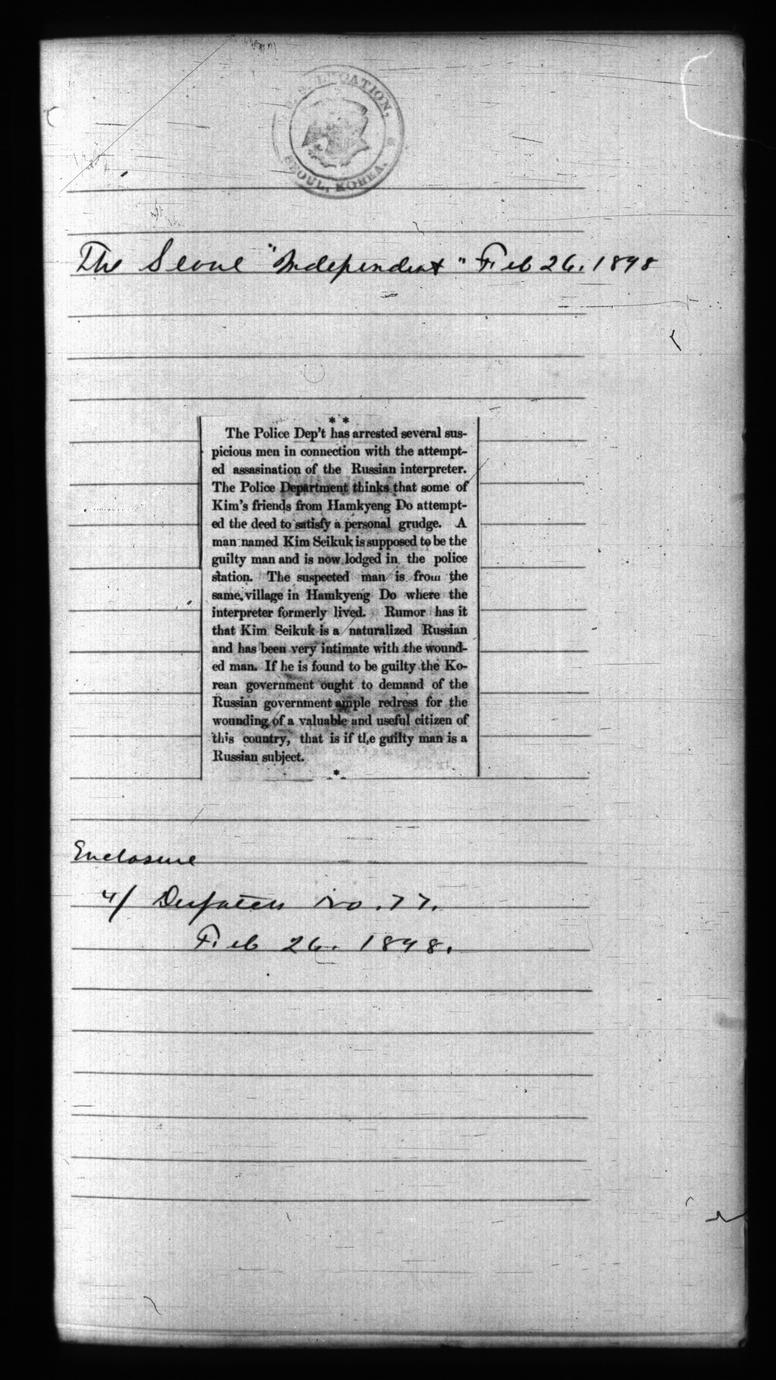 U.S. LEGATION,
SEOUL, KOREA.
The Seoul "Independent" Feb 26. 1898
* *
The Police Dep't has arrested several sus-
picious men in connection with the attempt-
ed assasination of the Russian interpreter.
The Police Department thinks that some of
Kim's friends from Hamkyeng Do attempt-
ed the deed to satisfy a personal grudge. A
man named Kim Seikuk is supposed to be the
guilty man and is now lodged in the police
station. The suspected man is from the
same village in Hamkyeng Do where the
interpreter formerly lived. Rumor has it
that Kim Seikuk is a naturalized Russian
and has been very intimate with the wound-
ed man. If he is found to be guilty the Ko-
rean government ought to demand of the
Russian government ample redress for the
wounding of a valuable and useful citizen of
this country, that is if the guilty man is a
Russian subject.
*
Enclosure
4/ Despatch No. 77.
Feb 26. 1898.